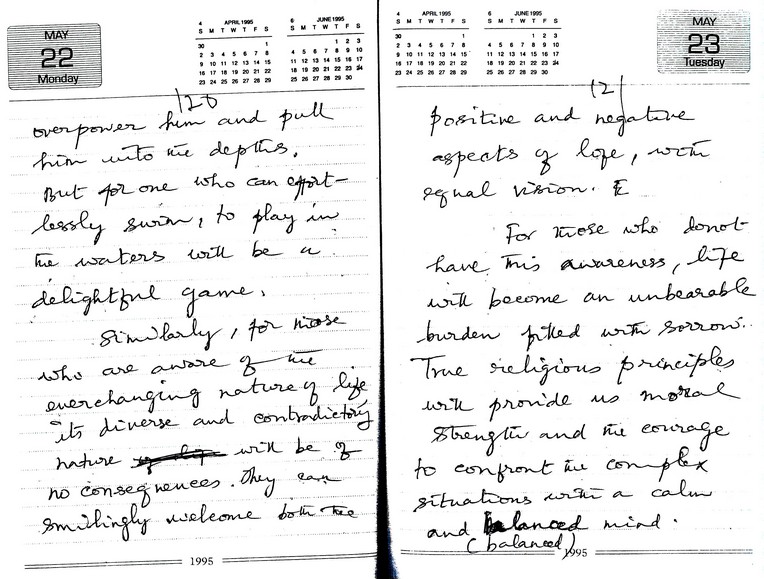 MAY
22
Monday
4 APRIL 1995
S M T W T F S
30 1
2 3 4 5 6 7 8
9 10 11 12 13 14 15
16 17 18 19 20 21 22
23 24 25 26 27 28 29
6 JUNE 1995
S M T W T F S
1 2 3
4 5 6 7 8 9 10
11 12 13 14 15 16 17
18 19 20 21 22 23 24
25 26 27 28 29 30
120
overpower him and pull
him into the depths.
But for one who can effort-
lessly swim, to play in
the waters will be a
delightful game.
Similarly, for those
who are aware of the
everchanging nature of life
its diverse and contradictory
nature of life will be of
no consequences. They can
smilingly welcome both the
1995
4 APRIL 1995
S M T W T F S
30 1
2 3 4 5 6 7 8
9 10 11 12 13 14 15
16 17 18 19 20 21 22
23 24 25 26 27 28 29
6 JUNE 1995
S M T W T F S
1 2 3
4 5 6 7 8 9 10
11 12 13 14 15 16 17
18 19 20 21 22 23 24
25 26 27 28 29 30
MAY
23
Tuesday
121
positive and negative
aspects of life, with
equal vision. E
For those who donot
have this awareness, life
will become an unbearable
burden filled with sorrow.
True religious principles
will provide us moral
strength and the courage
to confront the complex
situations with a calm
and balanced mind.
(balanced)
1995